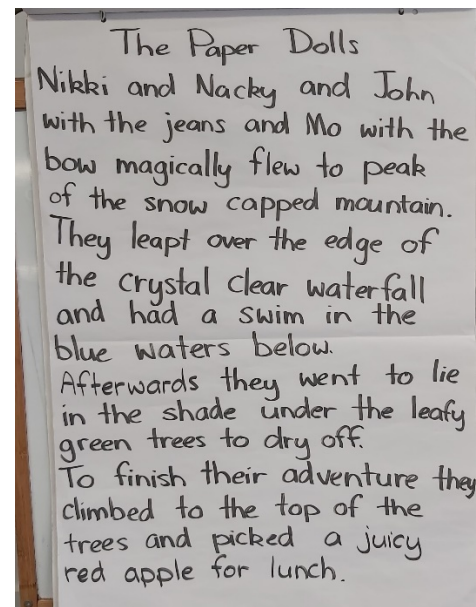 The Paper Dolls
Nikki and Nacky and John
with the jeans and Mo with the
bow magically flew to peak
of the snow capped mountain.
They leapt over the edge of
the crystal clear waterfall
and had a swim in the
blue waters below.
Afterwards they went to lie
in the shade under the leafy
green trees to dry off.
To finish their adventure they
climbed to the top of the
trees and picked a juicy
red apple for lunch.